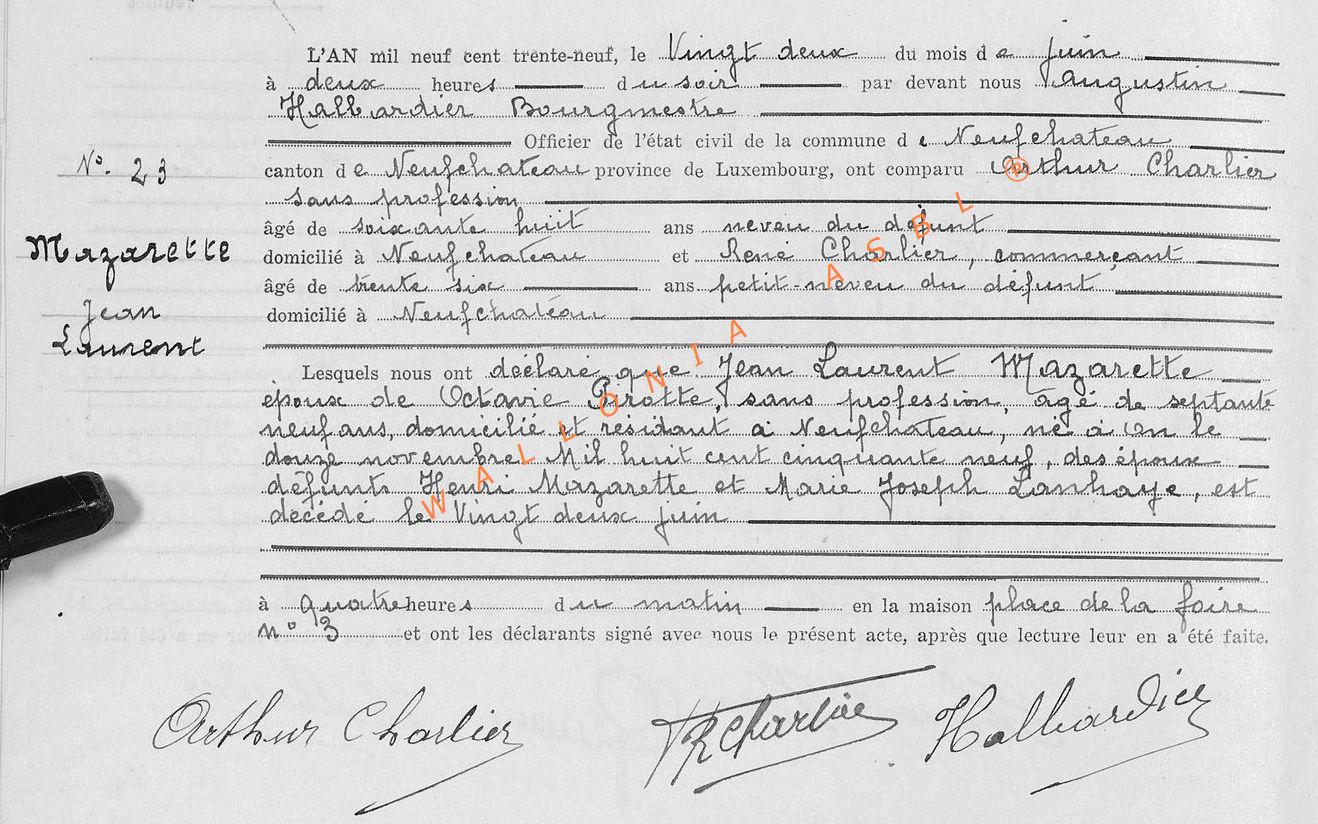 L'AN mil neuf cent trente-neuf, le Vingt deux du mois de juin
à deux heures du soir par devant nous Augustin
Halbardier Bourgmestre
Officier de l'état civil de la commune de Neufchateau
N°. 23
canton de Neufchateau province de Luxembourg, ont comparu Arthur Charlier
sans profession
âgé de soixante huit ans neveu du défunt
Mazarette
domicilié à Neufchateau et René Charlier, commerçant
âgé de trente six ans petit-neveu du défunt
Jean
domicilié à Neufchatéau
Laurent
Lesquels nous ont déclaré que Jean Laurent Mazarette
époux de Octavie Pirotte, sans profession, âgé de septante
neuf ans, domicilié et résidant à Neufchateau, né à On le
douze novembre Mil huit cent cinquante neuf, des époux
défunts Henri Mazarette et Marie Joseph Lanhaye, est
décédé le Vingt deux juin
à quatre heures du matin en la maison place de la foire
n° 3 et ont les déclarants signé avec nous le présent acte, après que lecture leur en a été faite.
Arthur Charlier RCharlier Halbardier
WALLONIA ASBL ®